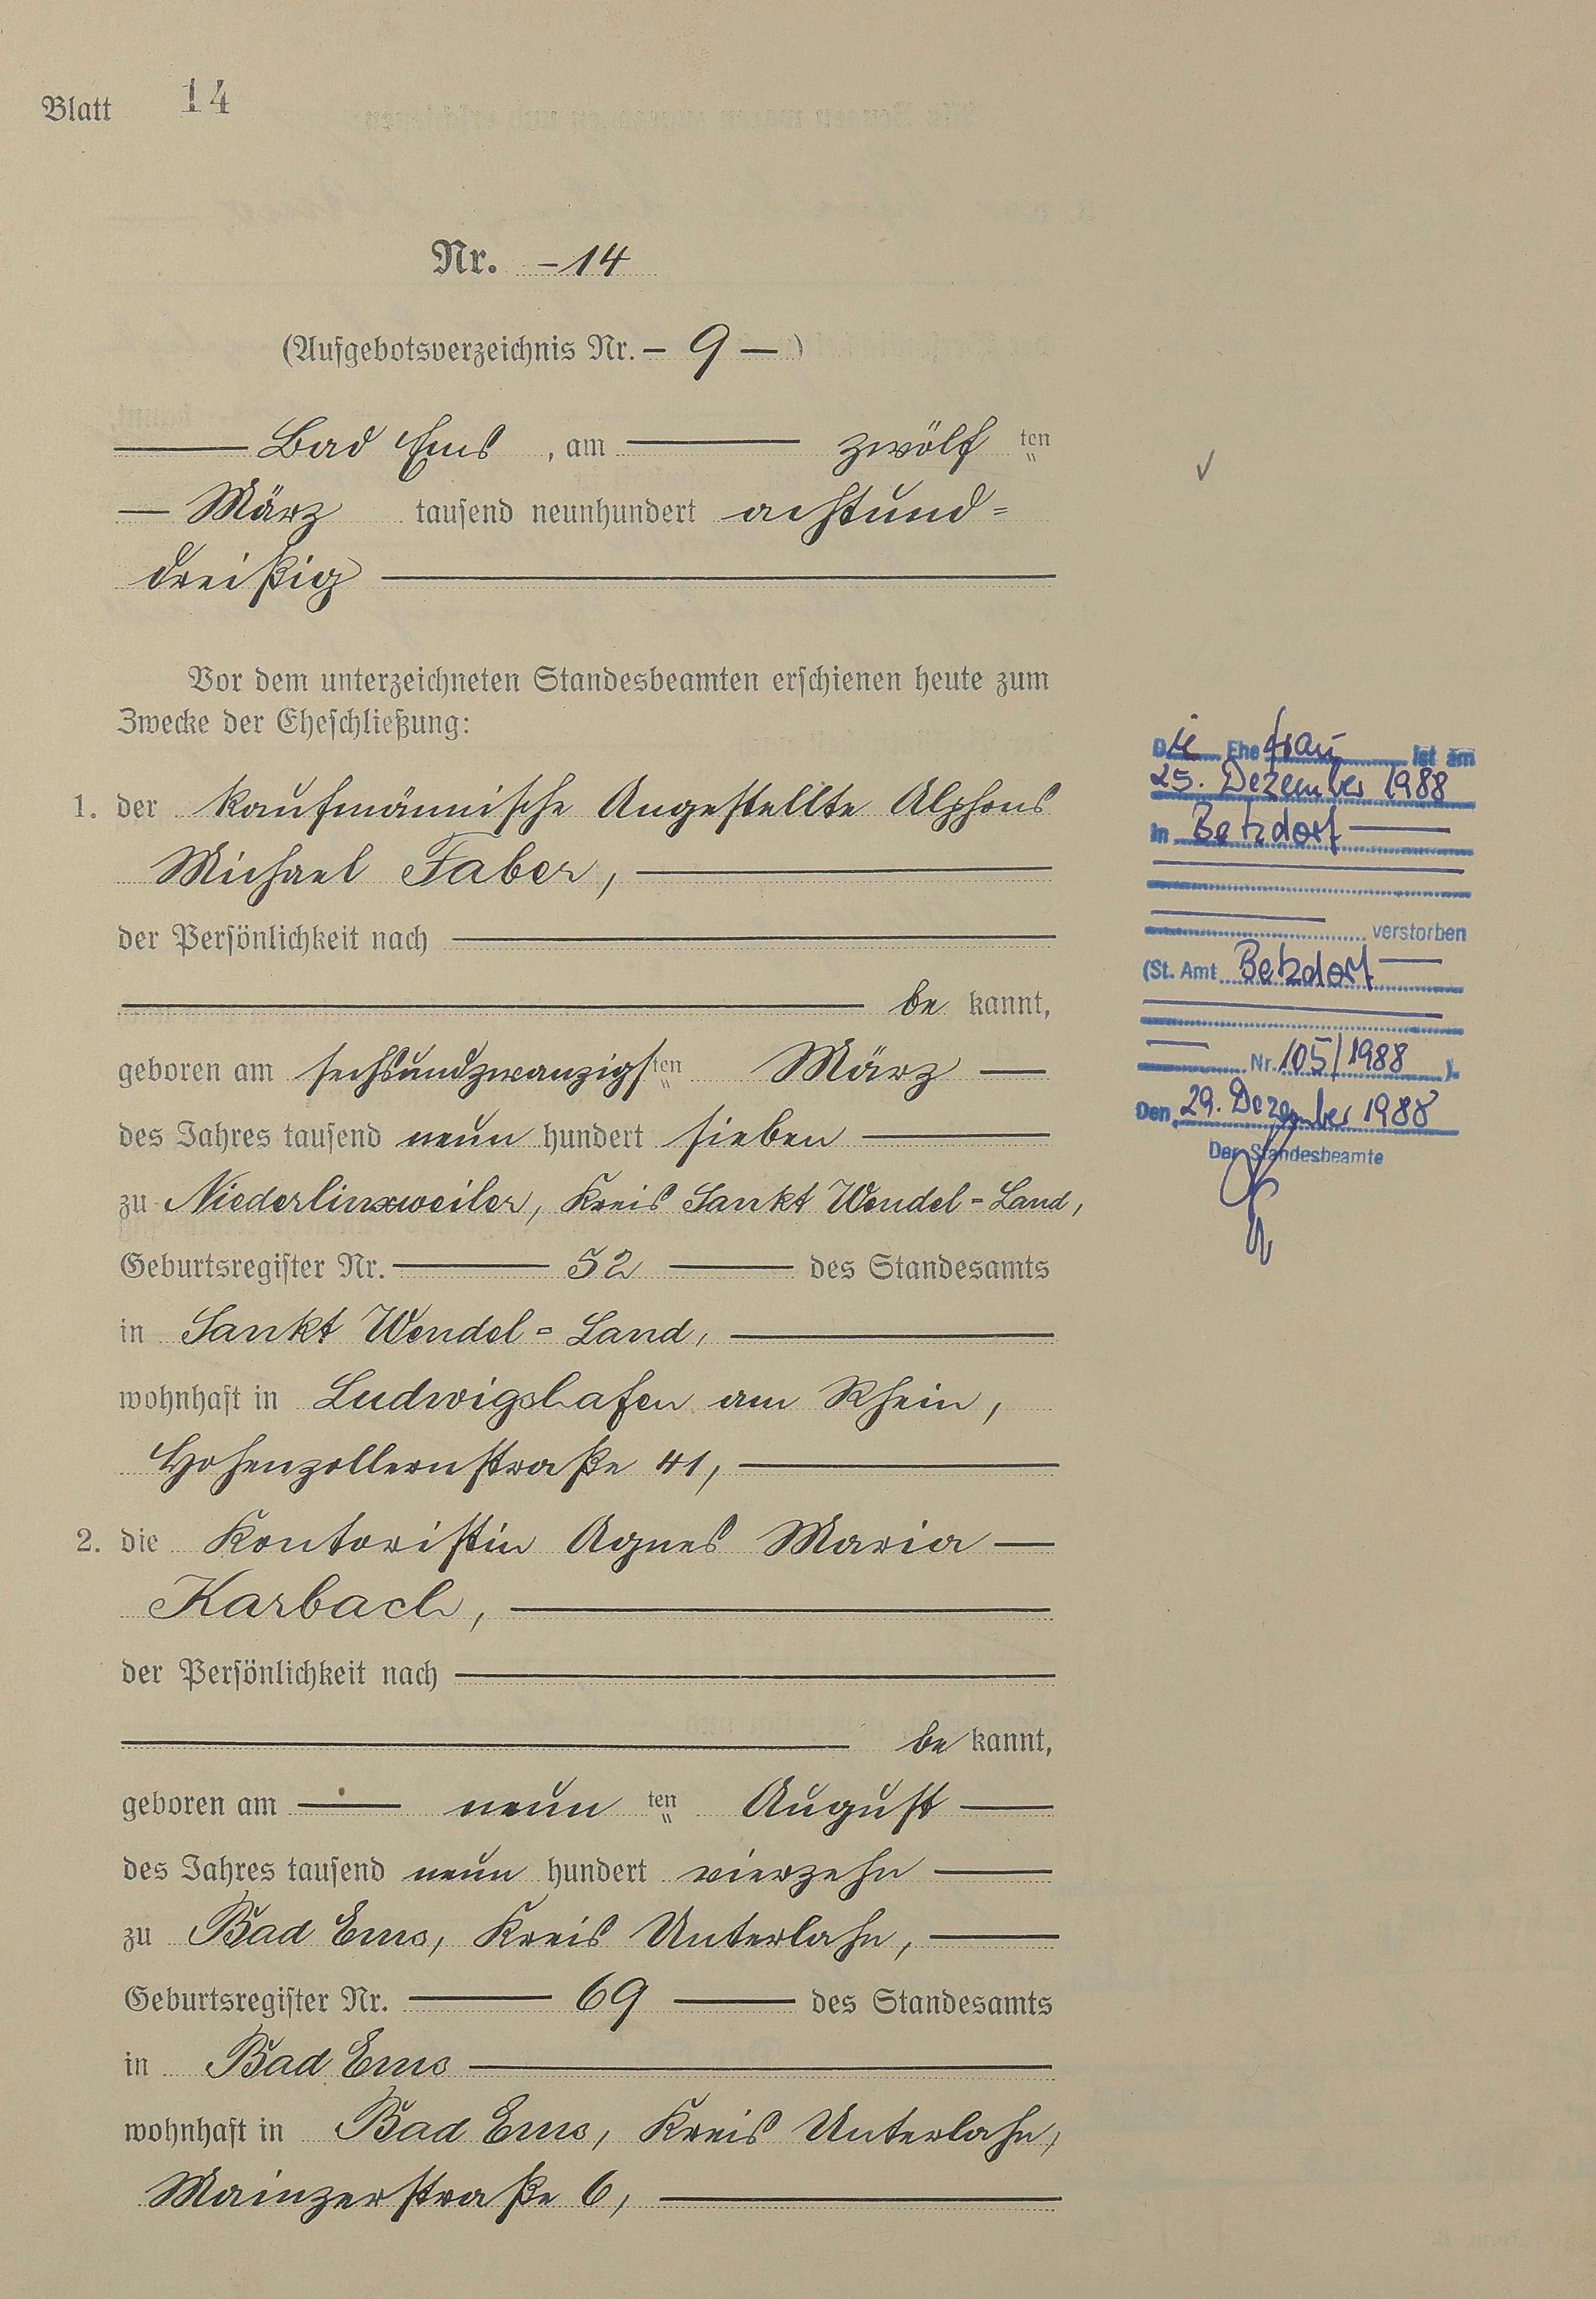 Blatt 14
Nr. -14
(Aufgebotsverzeichnis Nr. - 9 - )
Bad Ems, am zwölf ten
März tausend neunhundert achtund=
dreißig
Vor dem unterzeichneten Standesbeamten erschienen heute zum
Zwecke der Eheschließung:
1. der kaufmännische Angestellte Alphons
Michael Faber,
der Persönlichkeit nach
be kannt,
geboren am sechsundzwanzigsten März
des Jahres tausend neun hundert sieben
zu Niederlinxweiler, Kreis Sankt Wendel=Land,
Geburtsregister Nr. 52 des Standesamts
in Sankt Wendel=Land,
wohnhaft in Ludwigshafen am Rhein,
Hohenzollernstraße 41,
2. die Kontoristin Agnes Maria
Karbach,
der Persönlichkeit nach
be kannt,
geboren am neun ten August
des Jahres tausend neun hundert vierzehn
zu Bad Ems, Kreis Unterlahn,
Geburtsregister Nr. 69 des Standesamts
in Bad Ems
wohnhaft in Bad Ems, Kreis Unterlahn,
Mainzerstraße 6,
Die Ehefrau ist am
25. Dezember 1988
in Betzdorf
verstorben
(St. Amt Betzdorf
Nr. 105/1988 ).
Den 29. Dezember 1988
Der Standesbeamte